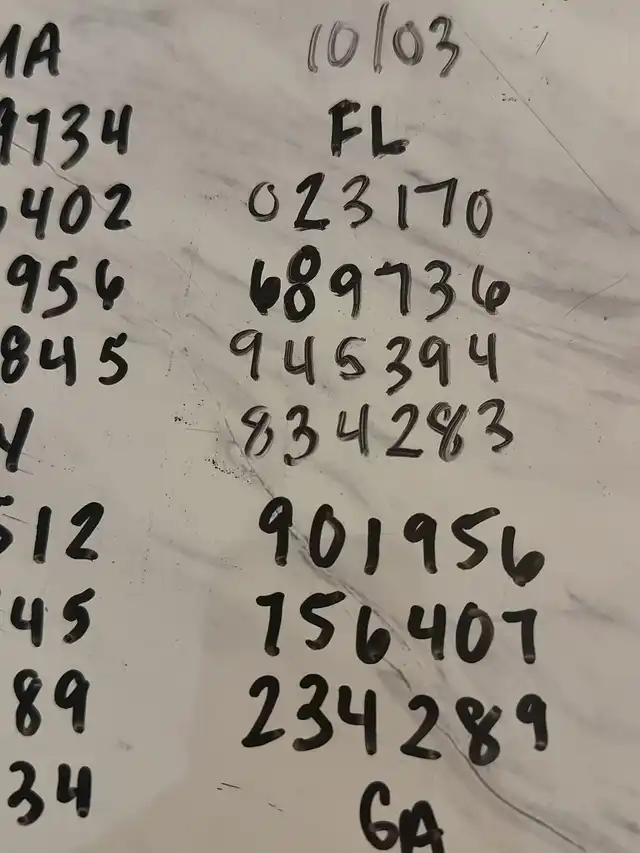 MA
9734
402
956
845
512
45
89
34
10/03
FL
023170
689736
945394
834283
901956
756407
234289
GA